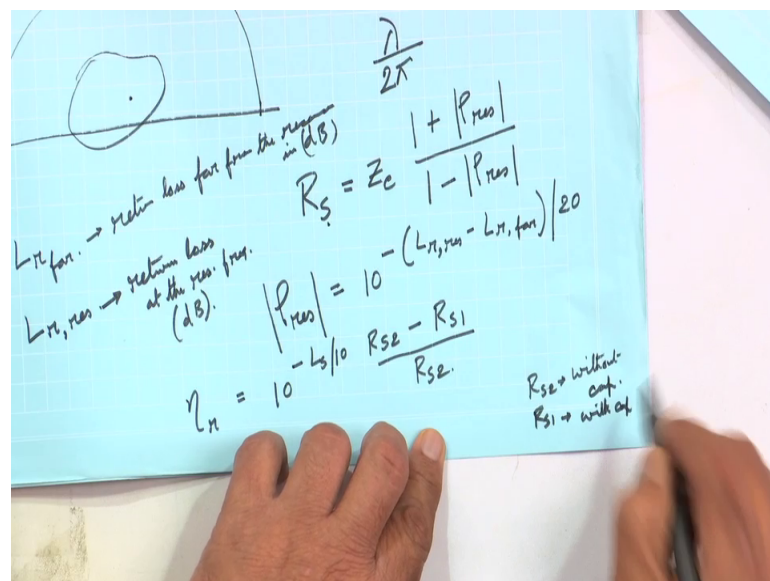 λ/2π
L_r far. → return loss far from the reson in (dB)
R_s = Z_c (1 + |ρ_res|)/(1 − |ρ_res|)
L_r,res → return loss
at the res. freq.
(dB).
|ρ_res| = 10^−(L_r,res − L_r,far)/20
η_r = 10^−L_s/10 (R_s2 − R_s1)/R_s2.
R_s2 → without
cap.
R_s1 → with cap